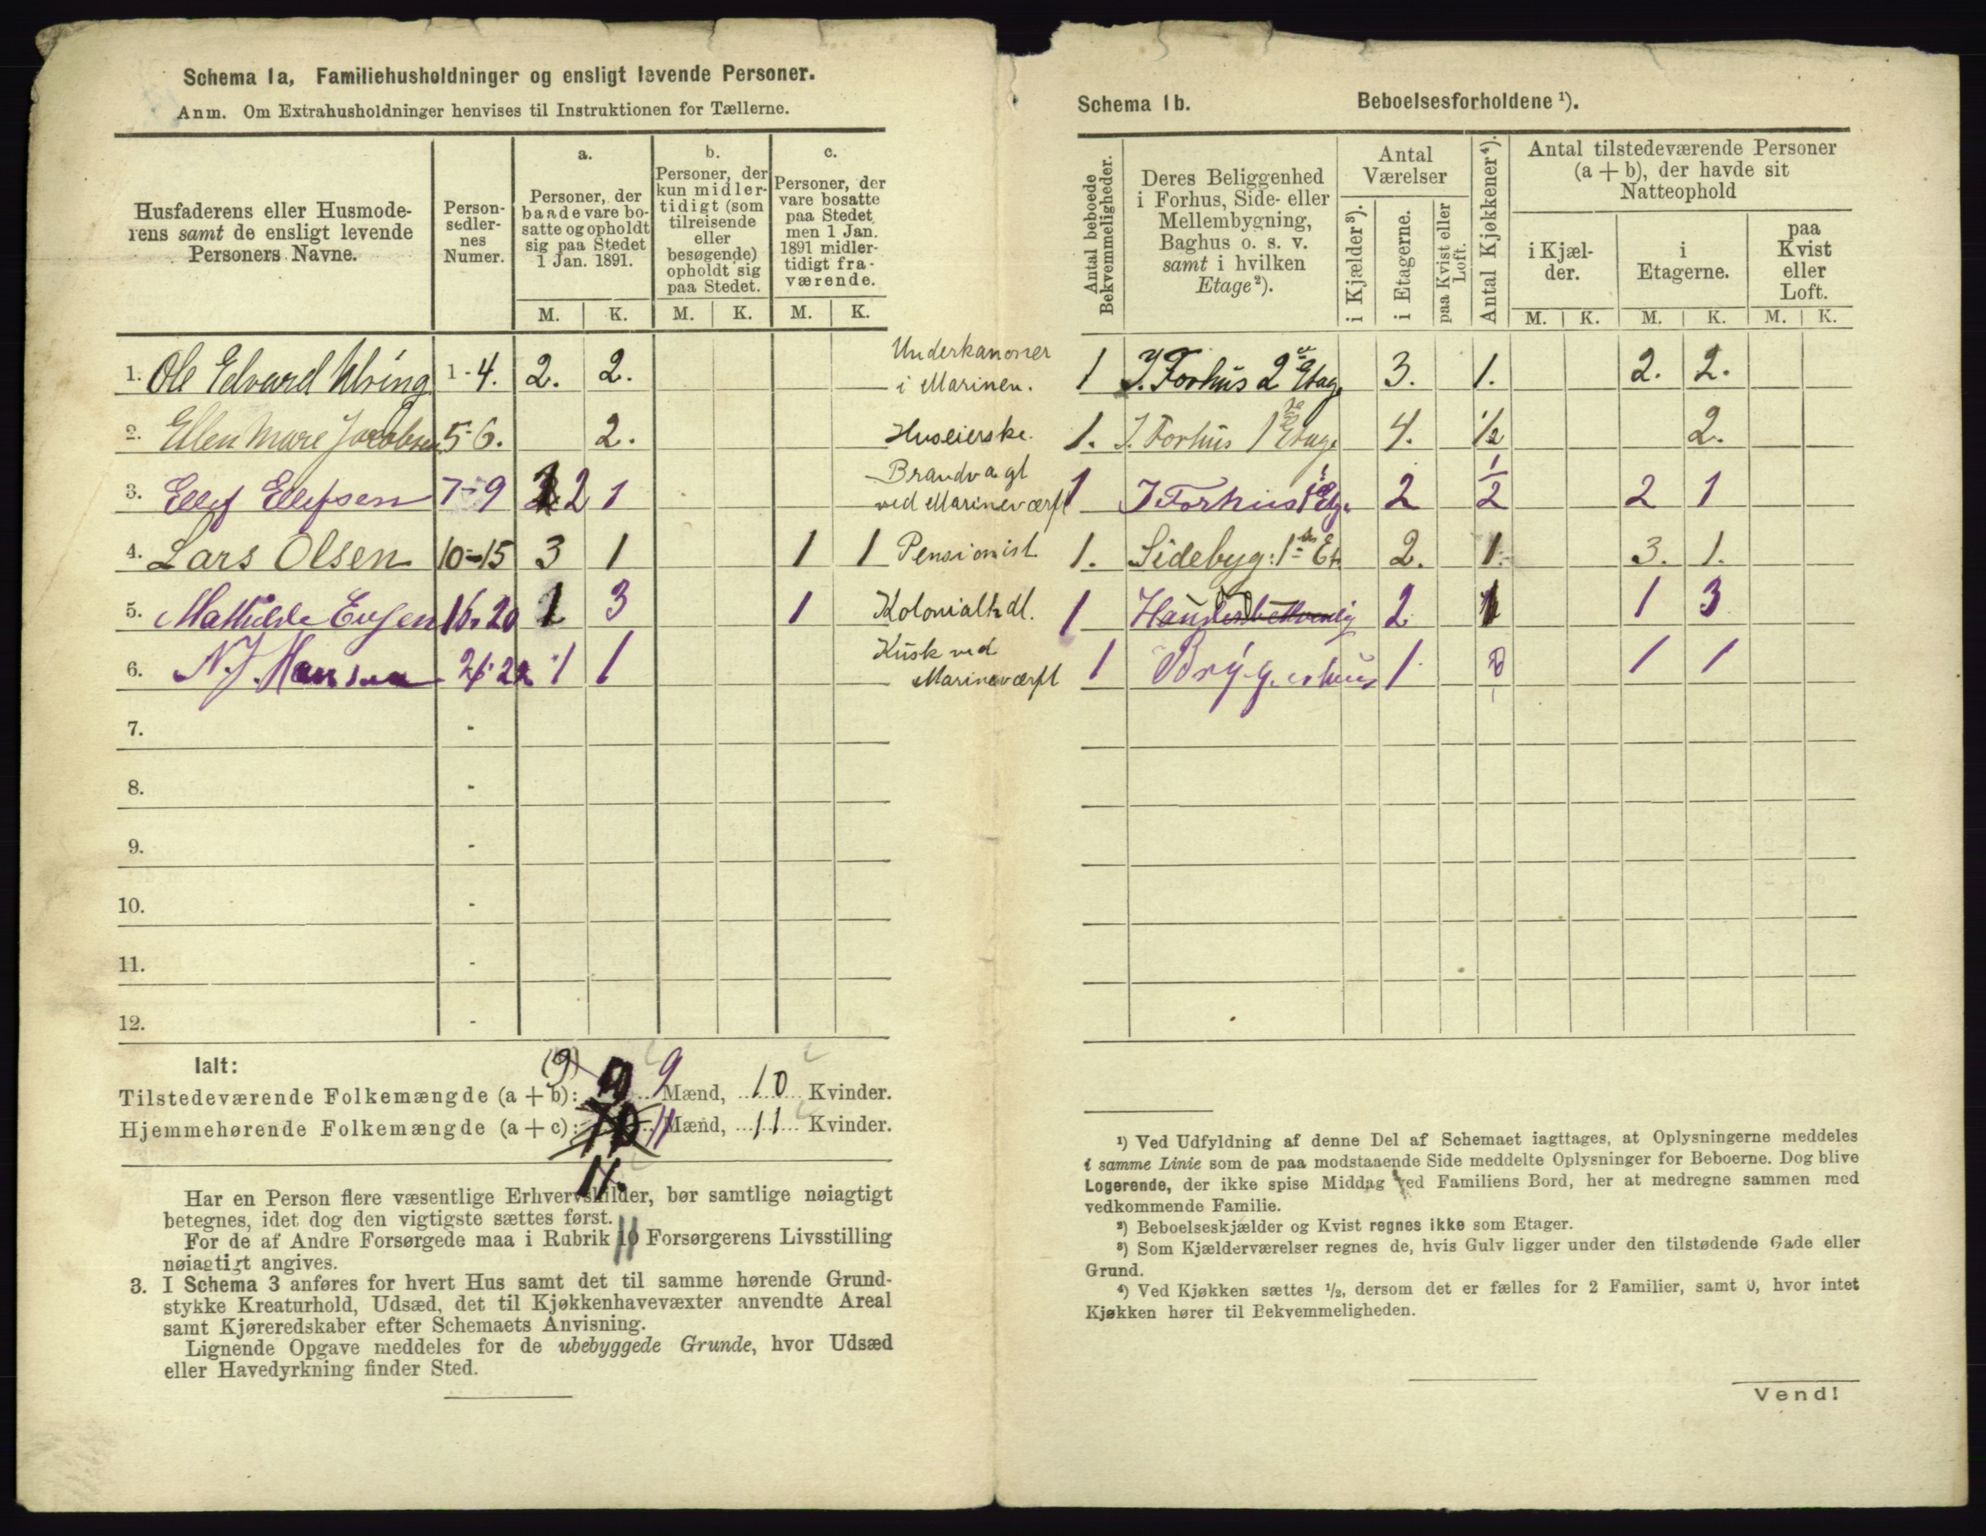 Schema 1a, Familiehusholdninger og ensligt levende Personer.
Anm. Om Extrahusholdninger henvises til Instruktionen for Tællerne.
Husfaderens eller Husmoderens samt de ensligt levende Personers Navne.
Personsedlernes Numer.
a. Personer, der baade vare bosatte og opholdt sig paa Stedet 1 Jan. 1891.
b. Personer, der kun midlertidigt (som tilreisende eller besøgende) opholdt sig paa Stedet.
c. Personer, der vare bosatte paa Stedet men 1 Jan. 1891 midlertidigt fraværende.
M. K. M. K. M. K.
1. Ole Edvard Ulving 1-4. 2. 2. Underkanoner i Marinen.
2. Ellen Mare Jacobsen 5-6. 2. Huseierske.
3. Ellef Ellefsen 7-9 2 1 Brandvagt ved Marineværft
4. Lars Olsen 10-15 3 1 1 1 Pensionist
5. Mathilde 16-20 1 3 1 Kolonialhdl.
6. N. J. Hansen 21-22 1 1 Kusk ved Marineværft
7. -
8. -
9. -
10. -
11. -
12. -
Ialt:
Tilstedeværende Folkemængde (a + b): (9) 9 Mænd, 10 Kvinder.
Hjemmehørende Folkemængde (a + c): 10 11 Mænd, 11 Kvinder.
11.
Har en Person flere væsentlige Erhvervskilder, bør samtlige nøiagtigt
betegnes, idet dog den vigtigste sættes først.
For de af Andre Forsørgede maa i Rubrik 11 Forsørgerens Livsstilling
nøiagtigt angives.
3. I Schema 3 anføres for hvert Hus samt det til samme hørende Grund-
stykke Kreaturhold, Udsæd, det til Kjøkkenhavevæxter anvendte Areal
samt Kjøreredskaber efter Schemaets Anvisning.
Lignende Opgave meddeles for de ubebyggede Grunde, hvor Udsæd
eller Havedyrkning finder Sted.
Schema 1b. Beboelsesforholdene ¹).
Antal beboede Bekvemmeligheder.
Deres Beliggenhed i Forhus, Side- eller Mellembygning, Baghus o. s. v. samt i hvilken Etage ²).
Antal Værelser
i Kjælder ³).
i Etagerne.
paa Kvist eller Loft.
Antal Kjøkkener ⁴).
Antal tilstedeværende Personer (a + b), der havde sit Natteophold
i Kjælder.
i Etagerne.
paa Kvist eller Loft.
M. K. M. K. M. K.
1 I. Forhus 2 Etag. 3. 1. 2. 2.
1. I. Forhus 1 Etage 4. ½ 2.
1 I Forhus 1 Etg. 2 ½ 2 1
1. Sidebyg: 1 Et. 2. 1. 3. 1.
1 2 1 1 3
1 Bryggerhus 1 0 1 1
¹) Ved Udfyldning af denne Del af Schemaet iagttages, at Oplysningerne meddeles
i samme Linie som de paa modstaaende Side meddelte Oplysninger for Beboerne. Dog blive
Logerende, der ikke spise Middag ved Familiens Bord, her at medregne sammen med
vedkommende Familie.
²) Beboelseskjælder og Kvist regnes ikke som Etager.
³) Som Kjælderværelser regnes de, hvis Gulv ligger under den tilstødende Gade eller
Grund.
⁴) Ved Kjøkken sættes ½, dersom det er fælles for 2 Familier, samt 0, hvor intet
Kjøkken hører til Bekvemmeligheden.
Vend!